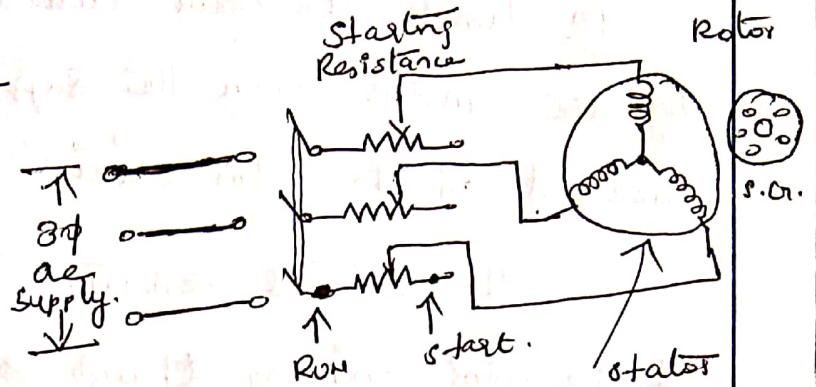 Starting
Resistance
Rotor
3φ
ac
supply.
RUN
start.
stator